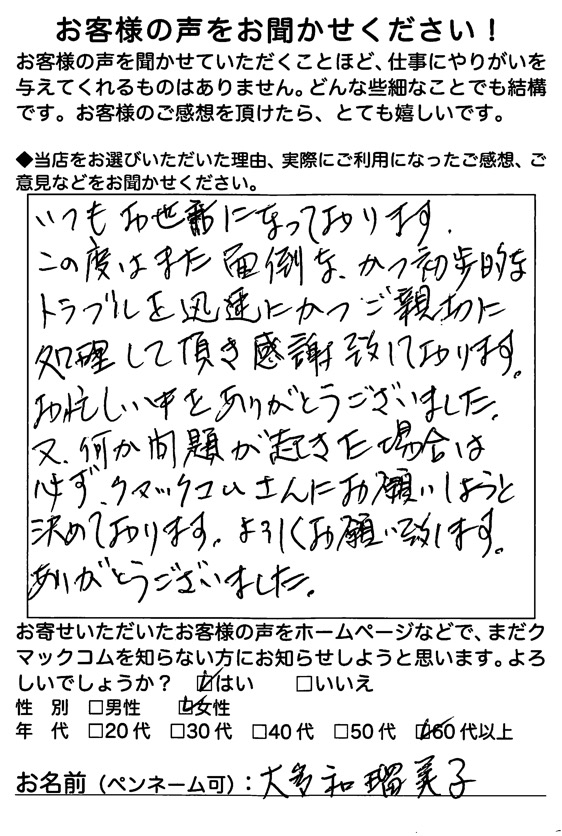 お客様の声をお聞かせください！
お客様の声を聞かせていただくことほど、仕事にやりがいを
与えてくれるものはありません。どんな些細なことでも結構
です。お客様のご感想を頂けたら、とても嬉しいです。
◆当店をお選びいただいた理由、実際にご利用になったご感想、ご
意見などをお聞かせください。
いつもお世話になっております。
この度はまた面倒な、かつ初歩的な
トラブルを迅速にかつご親切に
処理して頂き感謝致しております。
お忙しい中をありがとうございました。
又、何か問題が起きた場合は
必ず、クマックコムさんにお願いしようと
決めております。よろしくお願い致します。
ありがとうございました。
お寄せいただいたお客様の声をホームページなどで、まだク
マックコムを知らない方にお知らせしようと思います。よろ
しいでしょうか？ ☑はい □いいえ
性 別 □男性 ☑女性
年 代 □20代 □30代 □40代 □50代 ☑60代以上
お名前（ペンネーム可）：大多和瑠美子